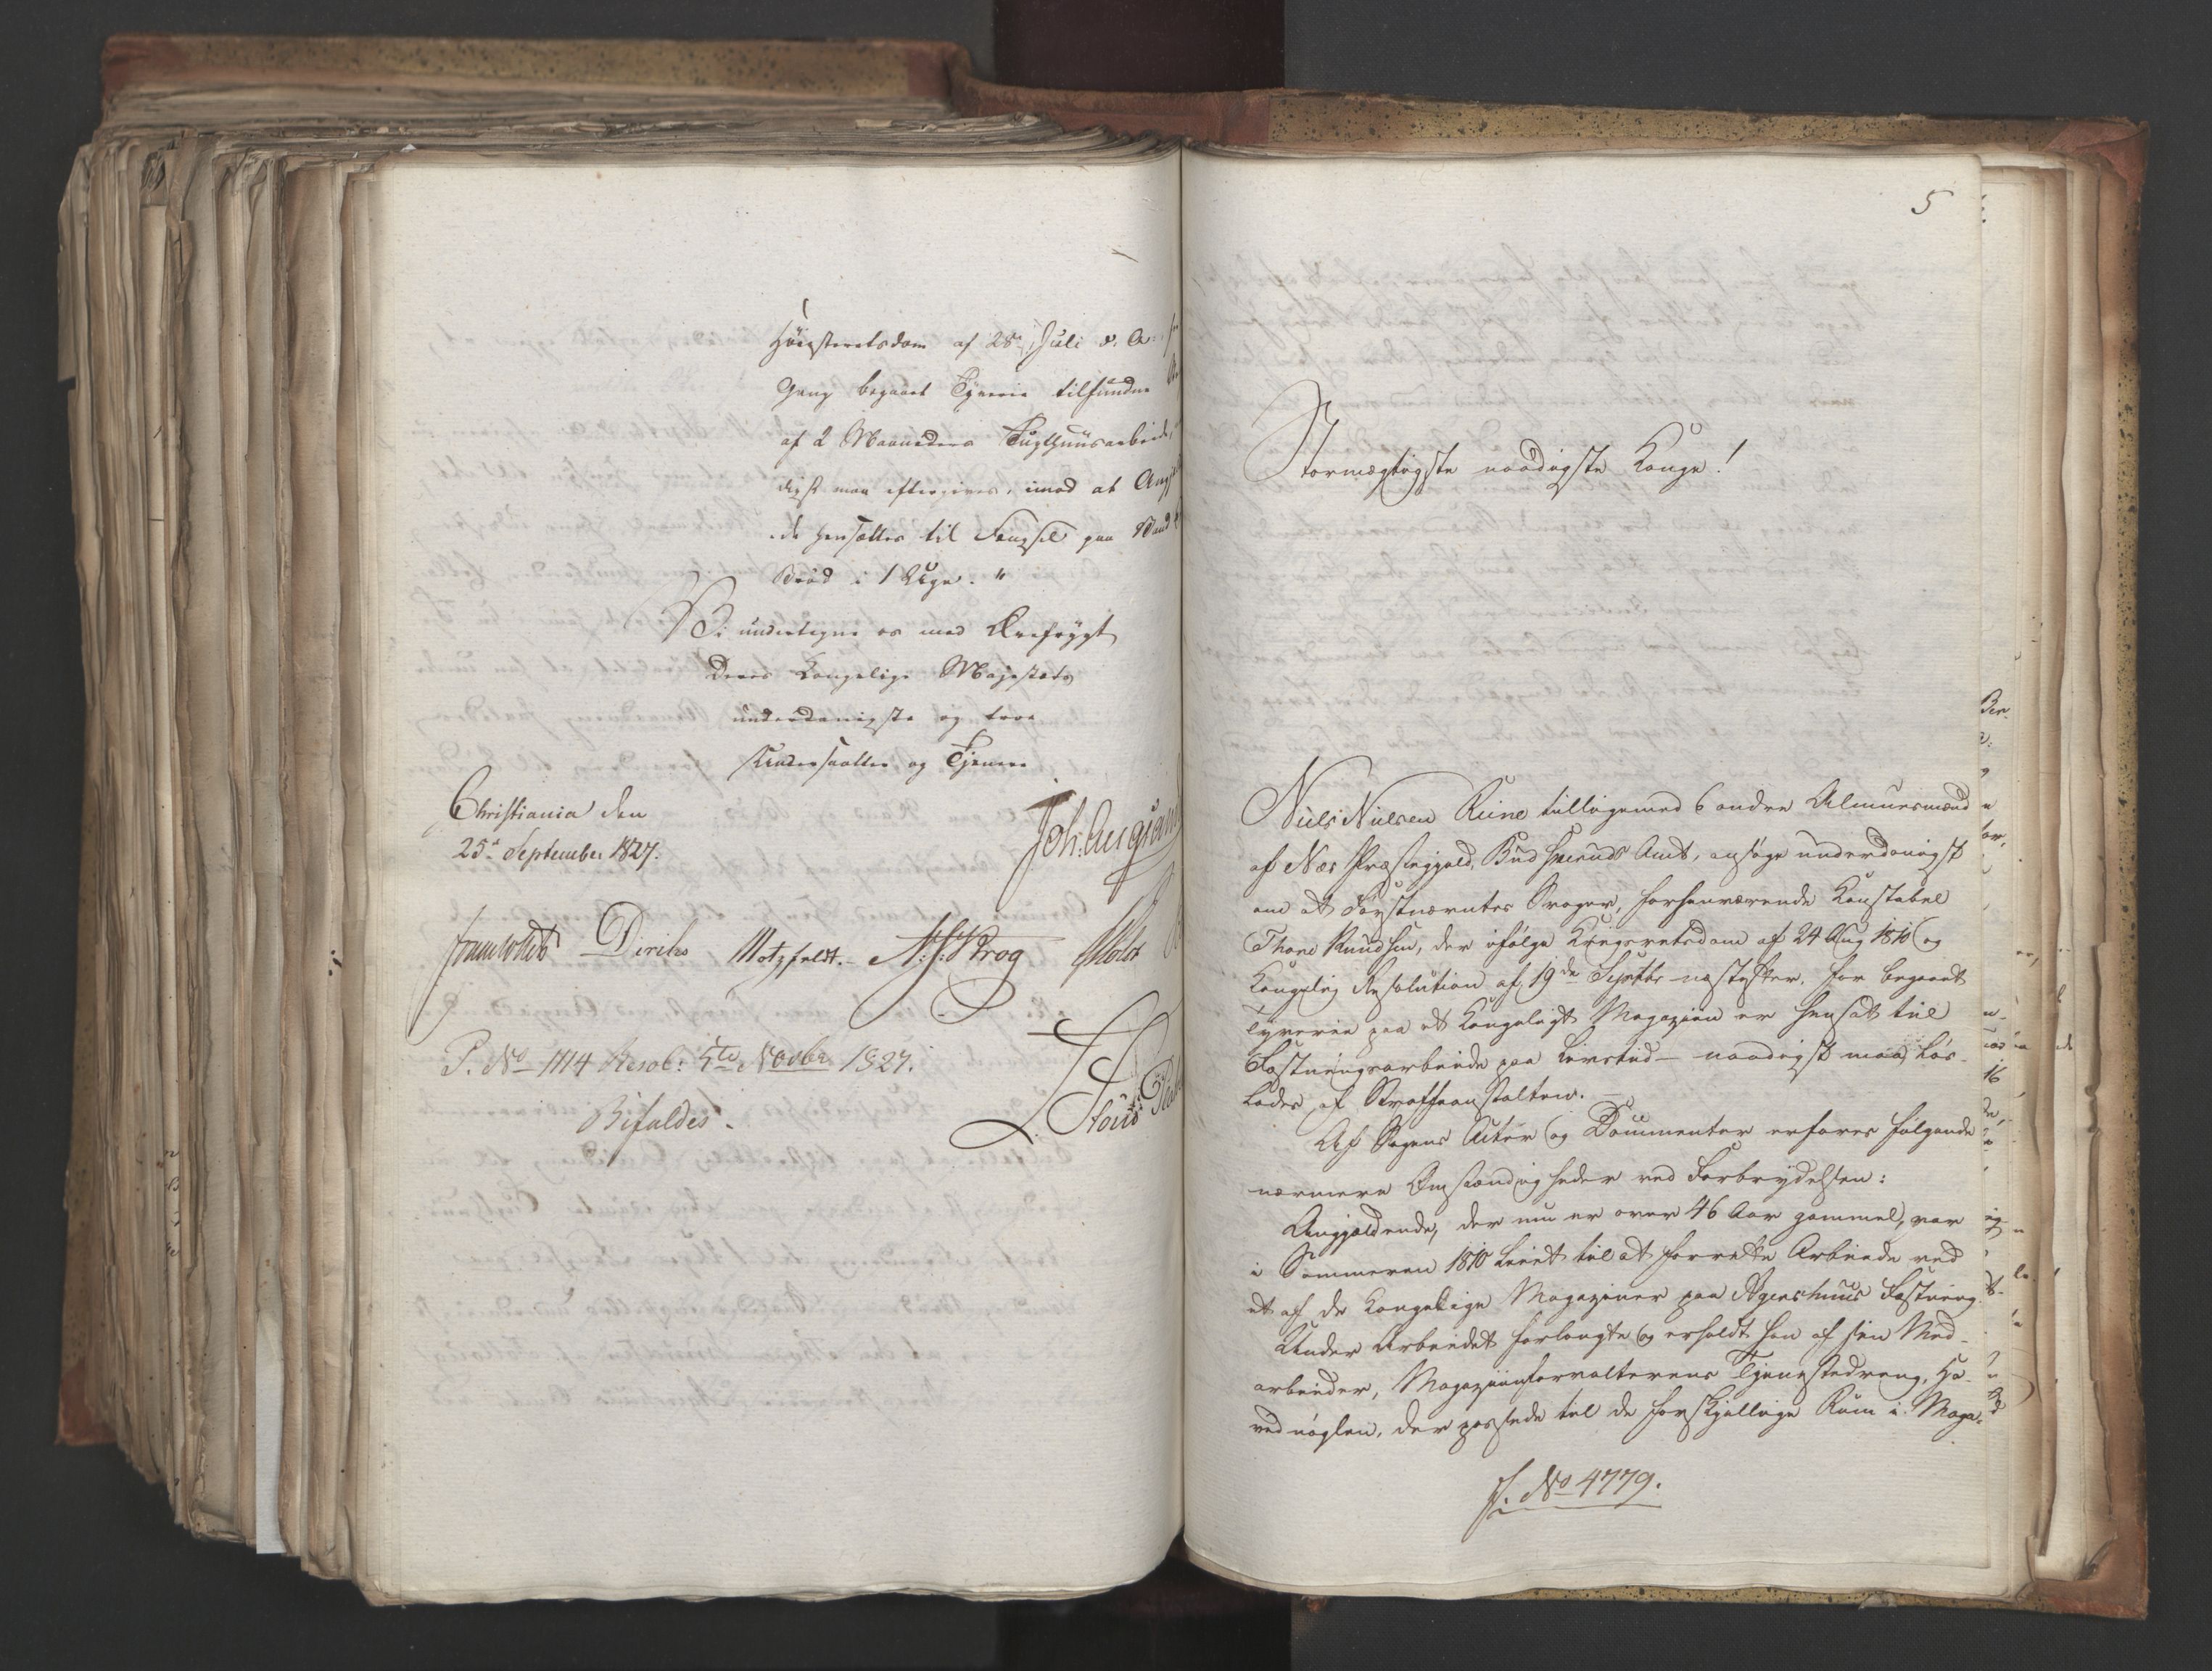 Høiesteretsdom af 28de Juli d. A. for
Gang begaaet Tyverie tilfundne
af 2 Maaneders Tugthuusarbeide,
digst maa eftergives, imod at Angjel
de hensættes til Fængsel paa Vand
Brød i 1 Uge."
Vi undertegne os med Ærefrygt
Deres Kongelige Majestæts
underdanigste og troe
Undersaatter og Tjenere
Christiania den
25de September 1827.
Joh. Aug Sand
Jonas Collett Diriks Motzfeldt. N: J: Krog Holst
P. No 1114 Resol: 5te Novbr 1827.
Bifaldes.
5
Stormægtigste naadigste Konge!
Niels Nielsen Rime tilligemed 6 andre Almuesmænd
af Næs Præstegjeld, Buskeruds Amt, ansøge underdanigst
om at Førstnævntes Svoger, forhenværende Konstabel
Thore Knudsen, der ifølge Krigsretsdom af 24 Aug 1810 og
Kongelig Resolution af 19de Septbr næstefter, for begaaet
Tyverie paa et Kongeligt Magazin er hensat til
Fæstningsarbeide paa Livstid – naadigst maa løs-
lades af Straffeanstalten. –
Af Sagens Acter og Documenter erfares følgende
nærmere Omstændigheder ved Forbrydelsen:
Angjældende, der nu er over 46 Aar gammel, var
i Sommeren 1810 leiet til at forrette Arbeide ved
et af de Kongelige Magaziner paa Agershuus Fæstning.
Under Arbeidet forlangte og erholdt han af sin Med-
arbeider, Magazinforvalterens Tjenestedreng, Ho-
vednøglen, der passede til de forskjellige Rum i Maga-
J. No 4779.